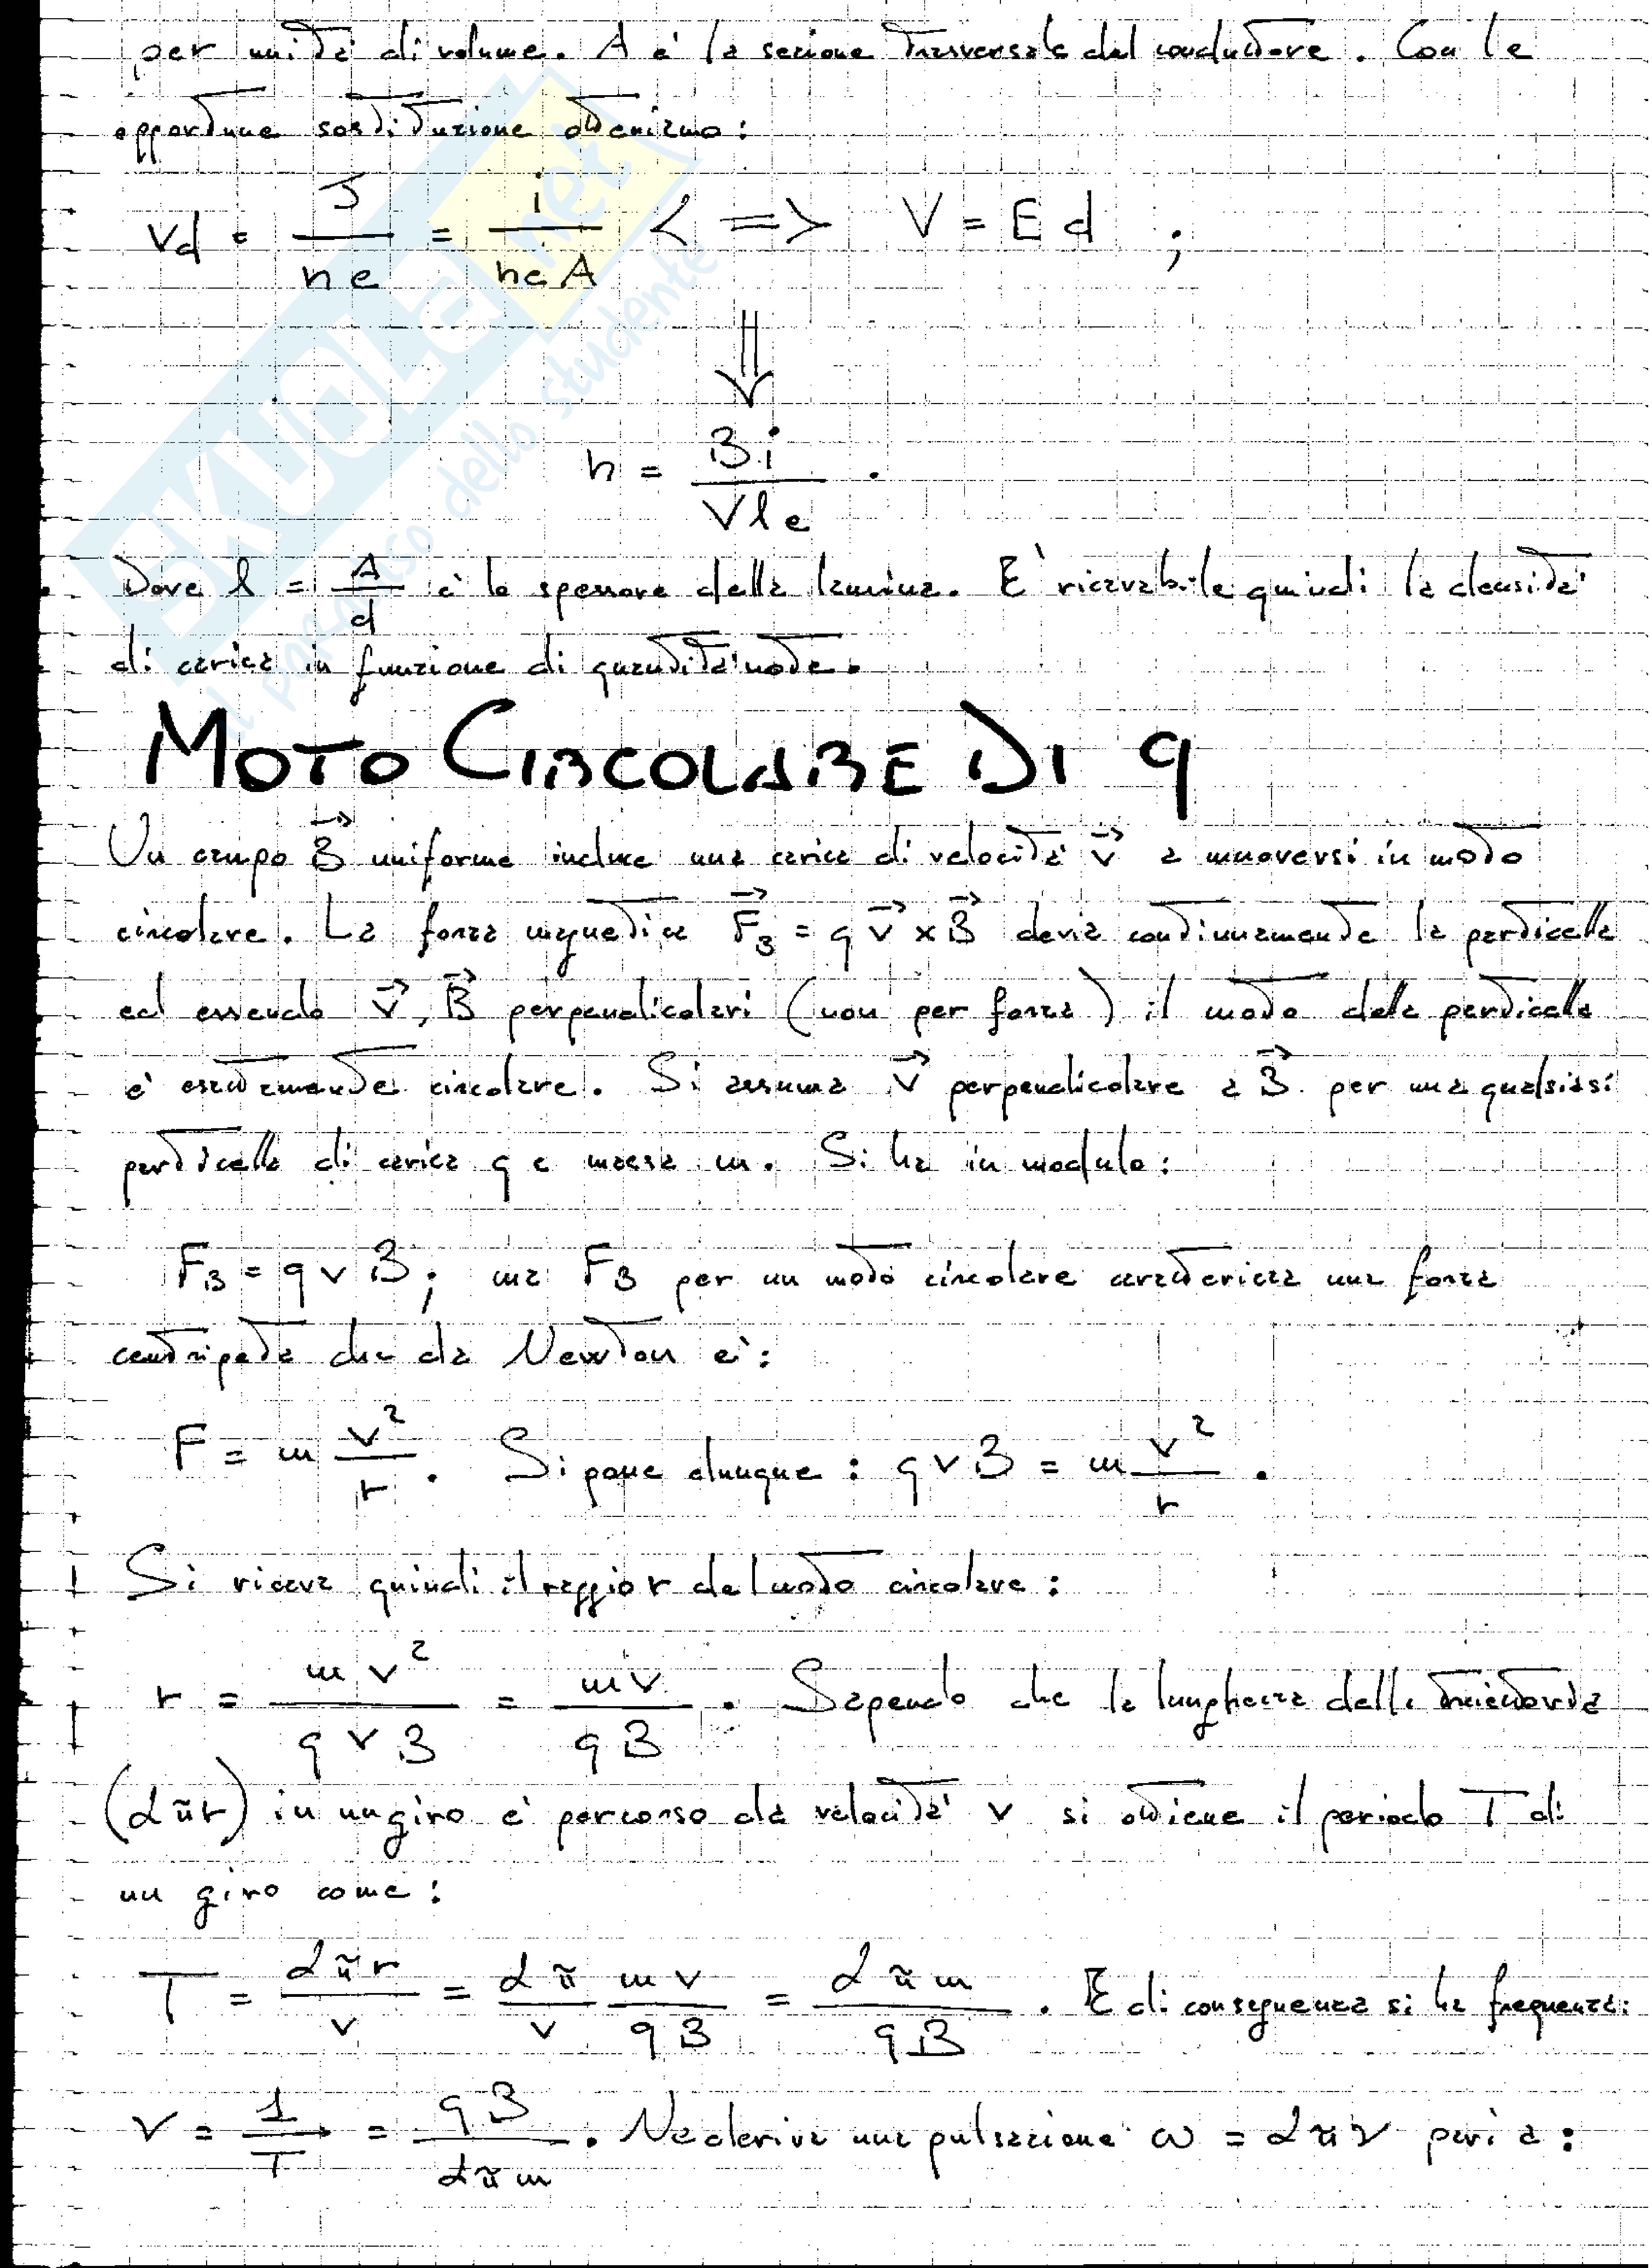 per unità di volume. A è la sezione trasversale del conduttore. Con le
opportune sostituzione otteniamo:
Vd = J / ne = i / neA <=> V = E d ;
n = Bi / Vle .
Dove l = A / d è lo spessore della lamina. E' ricavabile quindi la densità
di carica in funzione di quantità note.
MOTO CIRCOLARE DI q
Un campo B uniforme induce una carica di velocità v a muoversi in moto
circolare. La forza magnetica F_B = q v x B devia continuamente la particella
ed essendo v, B perpendicolari (non per forza) il moto della particella
è esattamente circolare. Si assuma v perpendicolare a B per una qualsiasi
particella di carica q e massa m. Si ha in modulo:
F_B = q v B; ma F_B per un moto circolare caratterizza una forza
centripeta che da Newton è:
F = m v² / r . Si pone dunque : q v B = m v² / r .
Si ricava quindi il raggio r del moto circolare :
r = m v² / q v B = m v / q B . Sapendo che la lunghezza della traiettoria
(2πr) in un giro è percorso da velocità v si ottiene il periodo T di
un giro come :
T = 2πr / v = 2π / v mv / qB = 2πm / qB . E di conseguenza si ha frequenza:
ν = 1 / T = qB / 2πm . Ne deriva una pulsazione ω = 2πν pari a :
SKUOLA.net
il paradiso dello studente